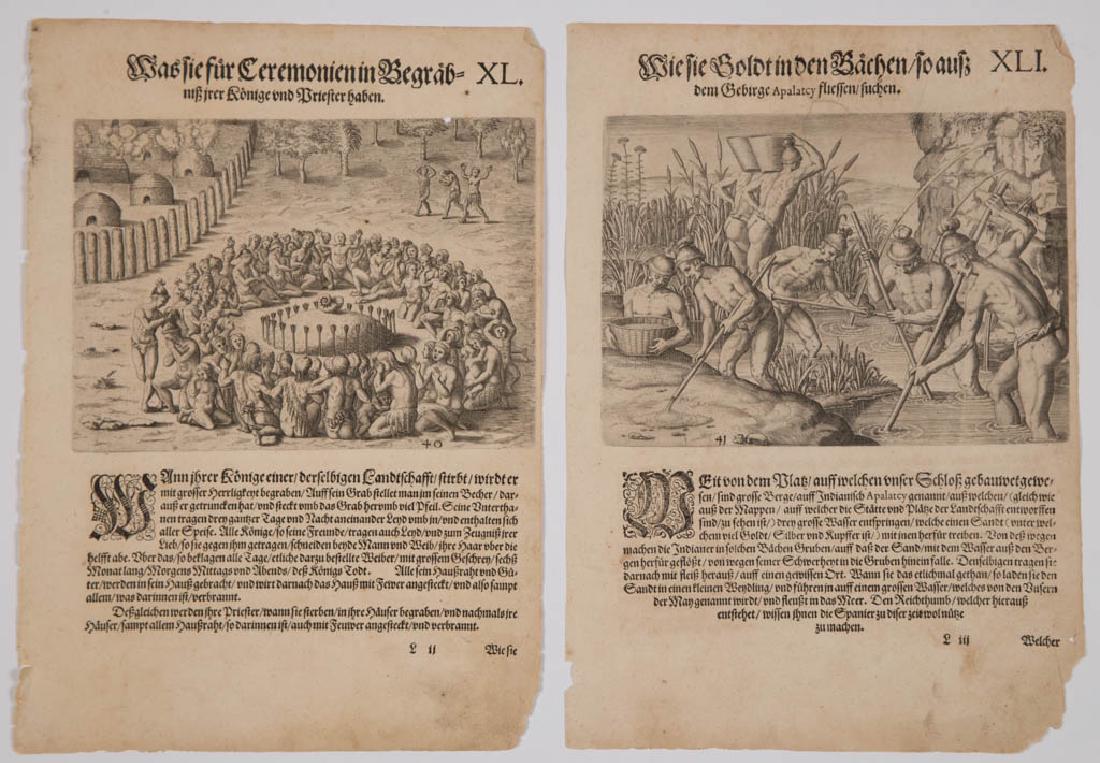 Was sie für Ceremonien in Begräb- XL.
niß jrer Könige vnd Priester haben.
40
WAnn jhrer Könige einer/ derselbigen Landtschafft/ stirbt/ wirdt er
mit grosser Herrligkeyt begraben/ Auff sein Grab stellet man jm seinen Becher/ dar-
auß er getruncken hat/ vnd steckt vmb das Grab hervmb viel Pfeil. Seine Vntertha-
nen tragen drey gantzer Tage vnd Nacht an einander Leyd vmb in/ vnd enthalten sich
aller Speise. Alle Könige/ so seine Freunde/ tragen auch Leyd/ vnd zum Zeugnuß jrer
Lieb/ so sie gegen jhm getragen/ schneiden beyde Mann vnd Weib/ ihre Haar vber die
helfft abe. Vber das/ so beklagen alle Tage/ etliche darzu bestellte Weiber/ mit grossem Geschrey/ sechß
Monat lang/ Morgens Mittags vnd Abends/ deß Königs Todt. Alle sein Haußraht vnd Gü-
ter/ werden in sein Hauß gebracht/ vnd wirt darnach das Hauß mit Fewer angesteckt/ vnd also sampt
allem/ was darinnen ist/ verbrannt.
Deßgleichen werden jhre Priester/ wann sie sterben/ in ihre Häuser begraben/ vnd nachmals jre
Häuser/ sampt allem Haußraht/ so darinnen ist/ auch mit Feuwer angesteckt/ vnd verbrannt.
L ij Wie sie
Wie sie Goldt in den Bächen/ so auß XLI.
dem Gebirge Apalatcy fliessen/ suchen.
41
WEit von dem Platz/ auff welchen vnser Schloß gebauwet gewe-
sen/ sind grosse Berge/ auff Indianisch Apalatcy genannt/ auß welchen/ (gleich wie
auß der Mappen/ auff welcher die Stätte vnd Plätze der Landschafft entworffen
sind/ zu sehen ist/) drey grosse Wasser entspringen/ welche einen Sandt (vnter wel-
chem viel Goldt/ Silber vnd Kupffer ist/) mit inen herfür treiben. Von deß wegen
machen die Indianer in solchen Bächen Gruben/ auff daß der Sand/ mit dem Wasser auß den Ber-
gen herfür geflößt/ von wegen seiner Schwerheyt in die Gruben hinein falle. Denselbigen tragen sie
darnach mit fleiß herauß/ auff ein gewissen Ort. Wann sie das etlichmal gethan/ so laden sie den
Sandt in einen kleinen Weydling/ vnd führen jn auff einem grossen Wasser/ welches von den Vnsern
der May genannt wirdt/ vnd fleußt in das Meer. Den Reichthumb/ welcher hierauß
entstehet/ wissen jhnen die Spanier zu diser zeit wol nütze
zu machen.
L iij Welcher